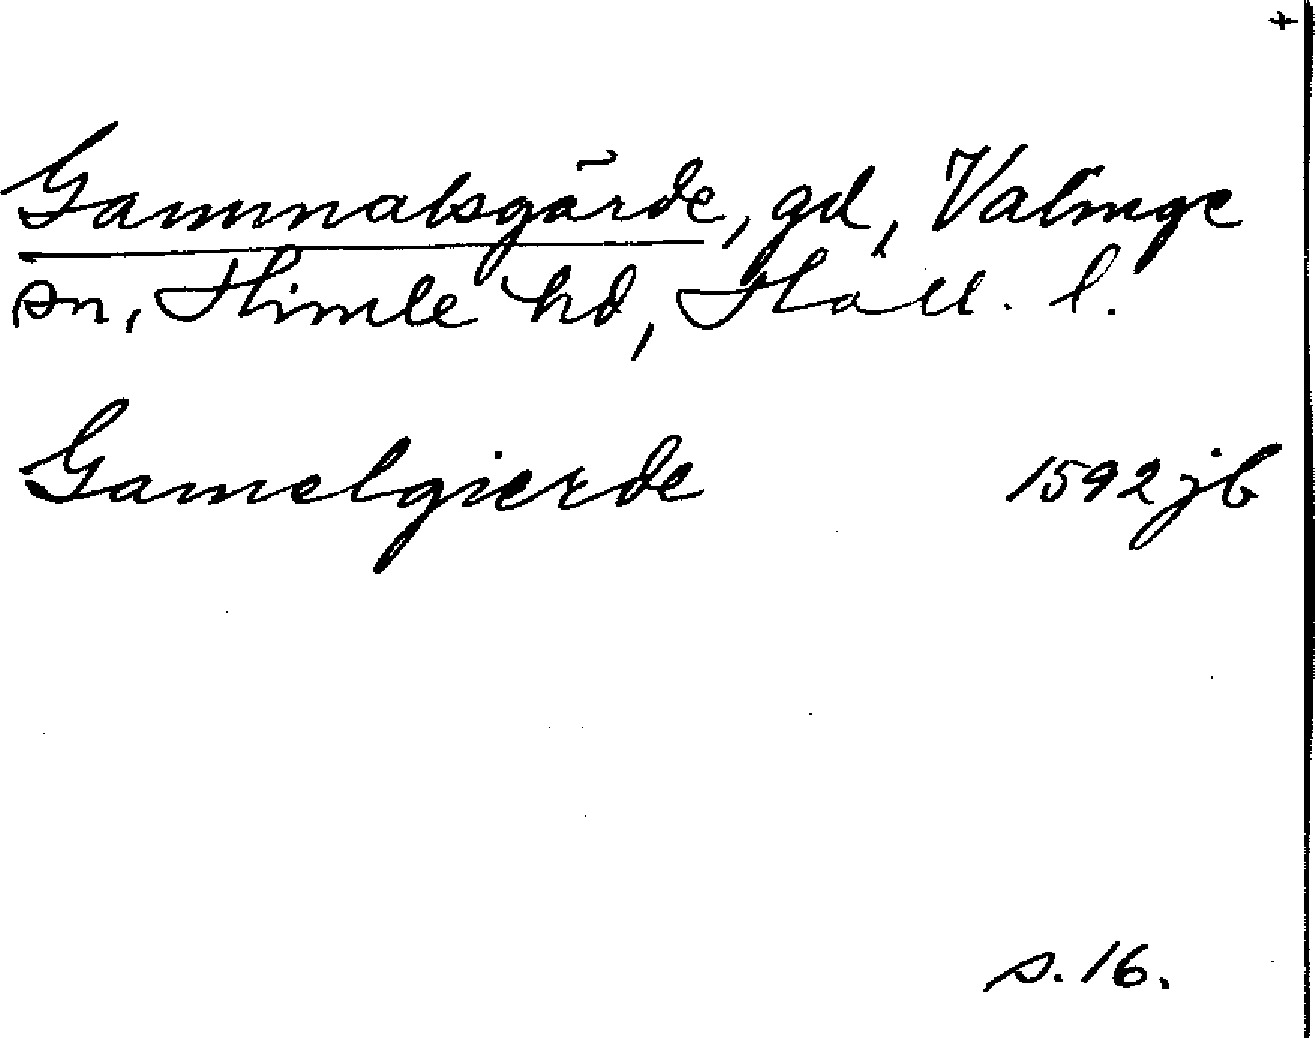 +
Gammalsgärde, gd, Valinge
sn, Himle hd, Hall. l.
Gamelgierde 1592 jb
s. 16.